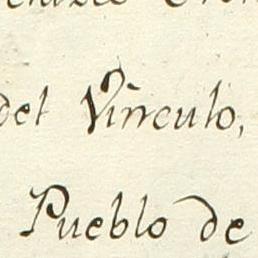 del Vinculo,
Pueblo de